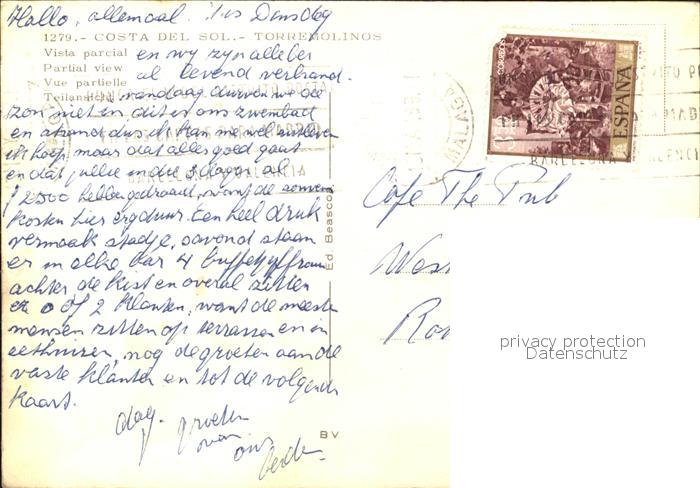 Hallo, allemaal. 't is Dinsdag
1279.- COSTA DEL SOL.- TORREMOLINOS
Vista parcial en wy zyn allebei
Partial view al levend verbrand.
Vue partielle
Teilansicht vandaag durven we de
zon niet en dit is ons zwembad
en strand, dus ik kan me wel uitleven
ik hoop maar dat alles goed gaat
en dat jullie in die 3 dagen al
ƒ 2500 hebben gedraaid, want de
kosten hier erg duur. Een heel druk
vermaak stadje, savond staan
er in elke bar 4 buffetjuffrouw
achter de kist en overal zitten
er 0 of 2 klanten, want de meeste
mensen zitten op terrassen en in
eethuizen, nog de groeten aan de
vaste klanten en tot de volgende
kaart.
dag.
groeten
van
ons
beide
Ed. Beascoa
BV
CORREOS
ESPAÑA
MALAGA
BARCELONA
VALENCIA
Cafe The Pub
Wes
Ro
privacy protection
Datenschutz